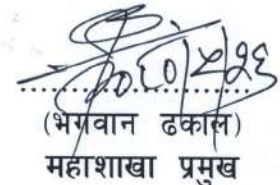 (भगवान ढकाल)
महाशाखा प्रमुख